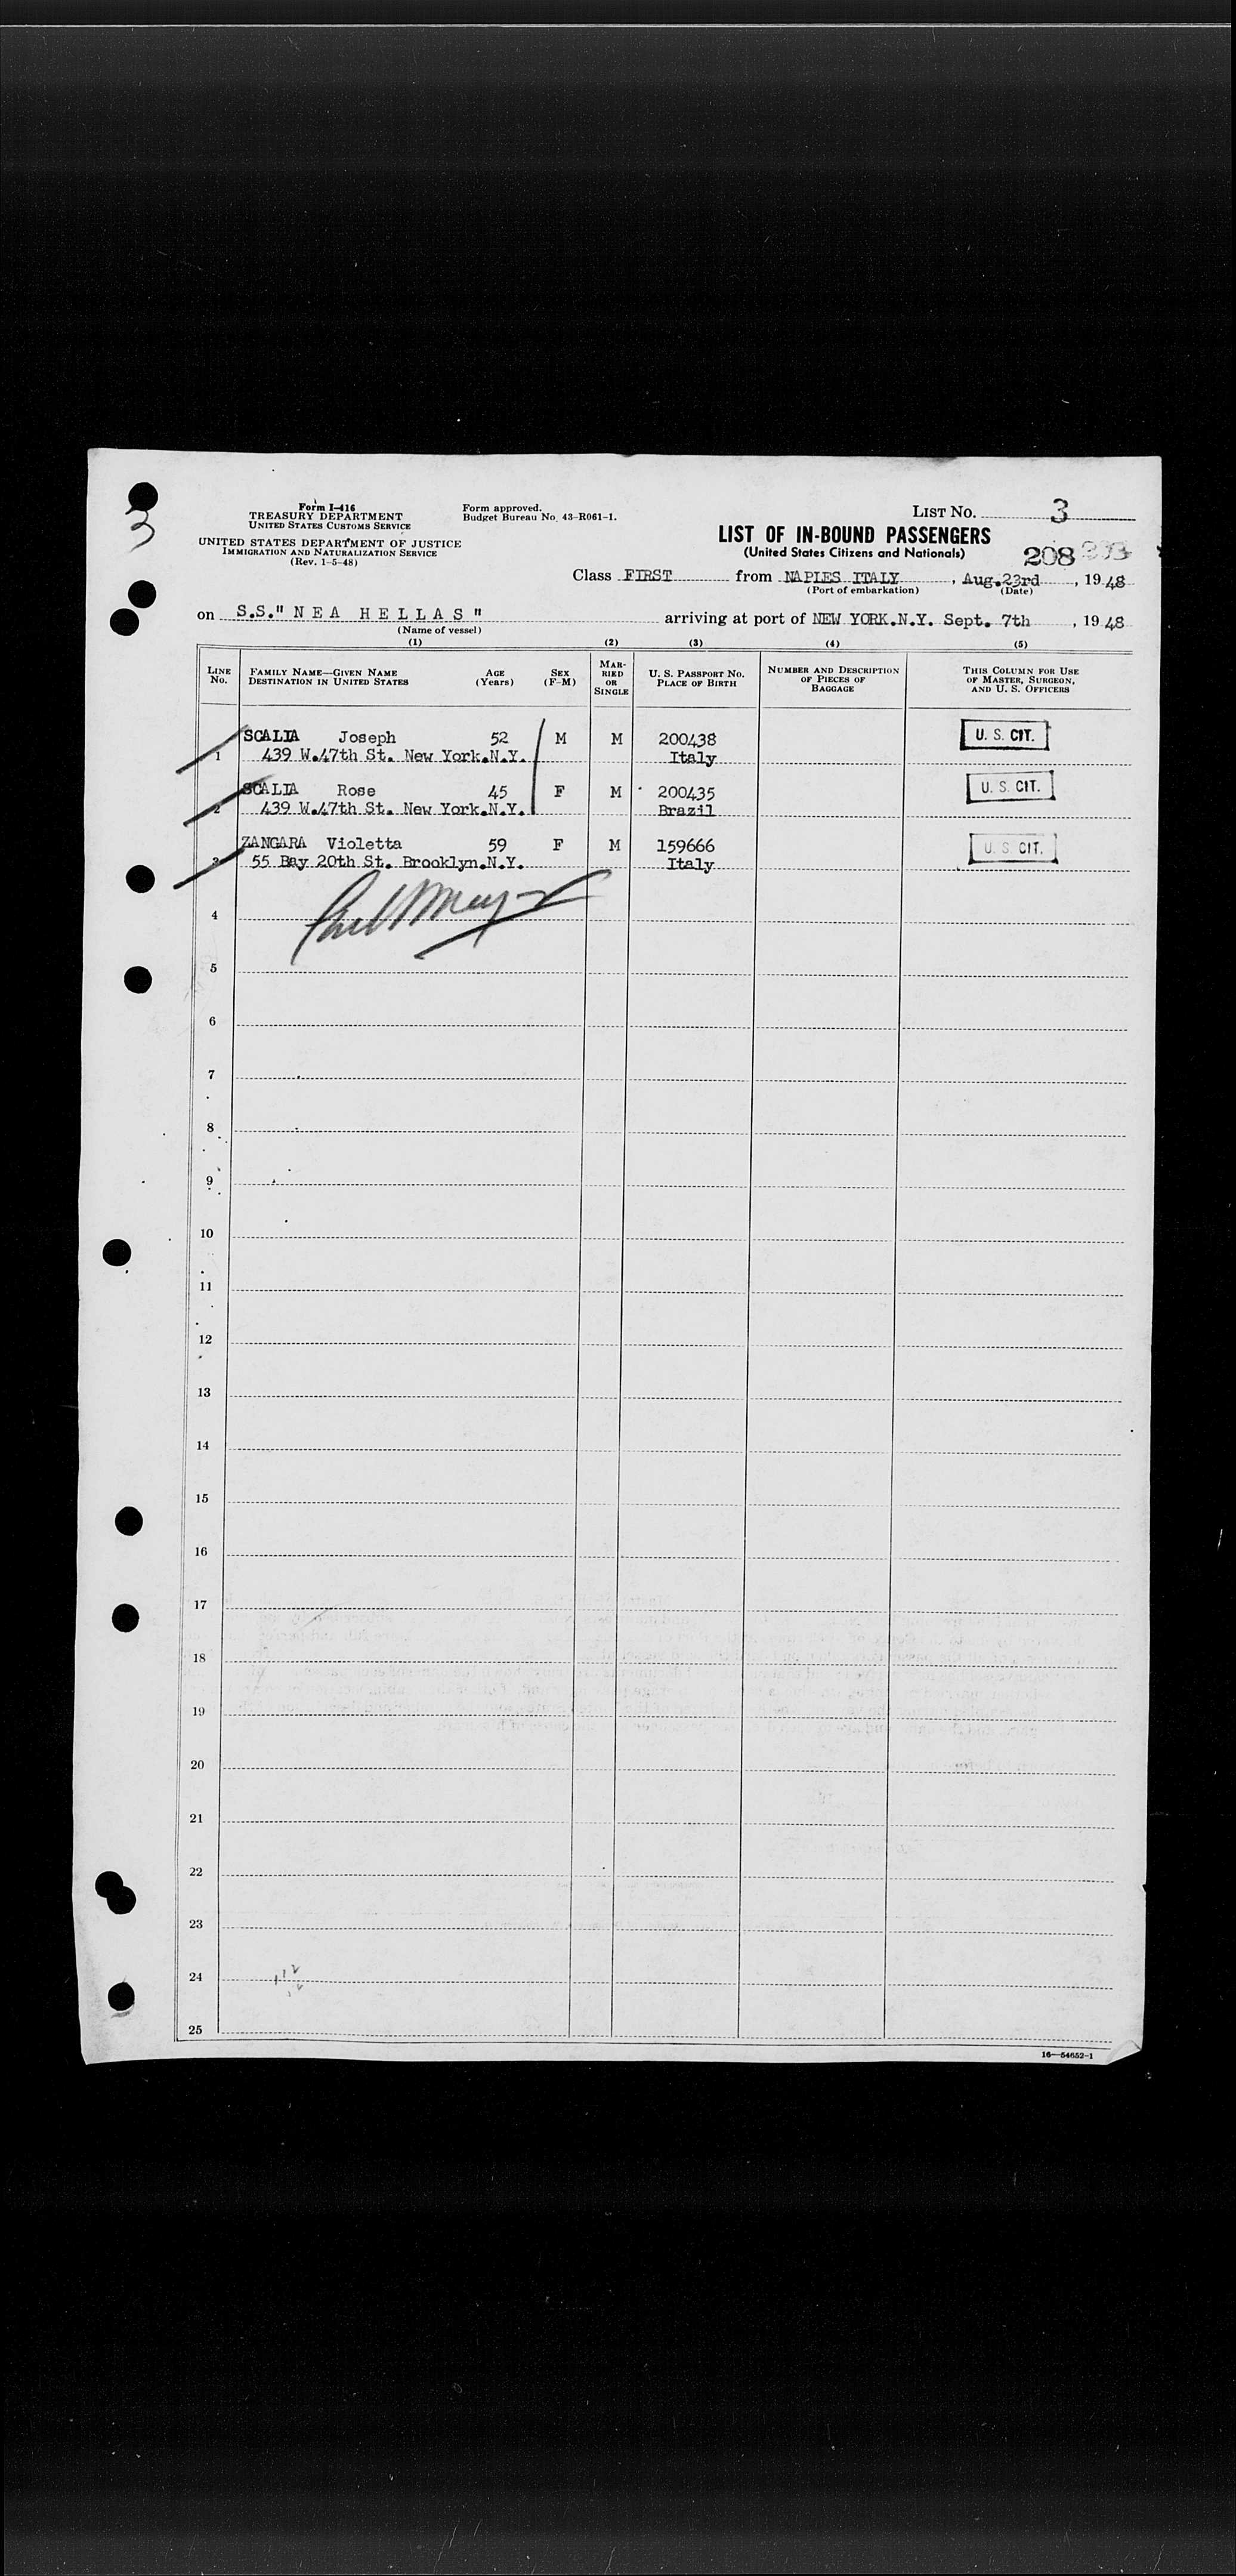 3
Form I-416
TREASURY DEPARTMENT
UNITED STATES CUSTOMS SERVICE
UNITED STATES DEPARTMENT OF JUSTICE
IMMIGRATION AND NATURALIZATION SERVICE
(Rev. 1-5-48)
Form approved.
Budget Bureau No. 43-R061-1.
LIST NO. 3
LIST OF IN-BOUND PASSENGERS
(United States Citizens and Nationals)
208
Class FIRST from NAPLES ITALY, Aug.23rd, 1948
(Port of embarkation) (Date)
on S.S." N E A H E L L A S " arriving at port of NEW YORK.N.Y. Sept. 7th, 1948
(Name of vessel)
(1) (2) (3) (4) (5)
LINE No. FAMILY NAME—GIVEN NAME DESTINATION IN UNITED STATES AGE (Years) SEX (F-M) MARRIED OR SINGLE U. S. PASSPORT NO. PLACE OF BIRTH NUMBER AND DESCRIPTION OF PIECES OF BAGGAGE THIS COLUMN FOR USE OF MASTER, SURGEON, AND U. S. OFFICERS
SCALIA Joseph 52 M M 200438 U. S. CIT.
1 439 W.47th St. New York.N.Y. Italy
SCALIA Rose 45 F M 200435 U. S. CIT.
2 439 W.47th St. New York.N.Y. Brazil
ZANGARA Violetta 59 F M 159666 U. S. CIT.
3 55 Bay 20th St. Brooklyn.N.Y. Italy
4
5
6
7
8
9
10
11
12
13
14
15
16
17
18
19
20
21
22
23
24
25
16—54652-1